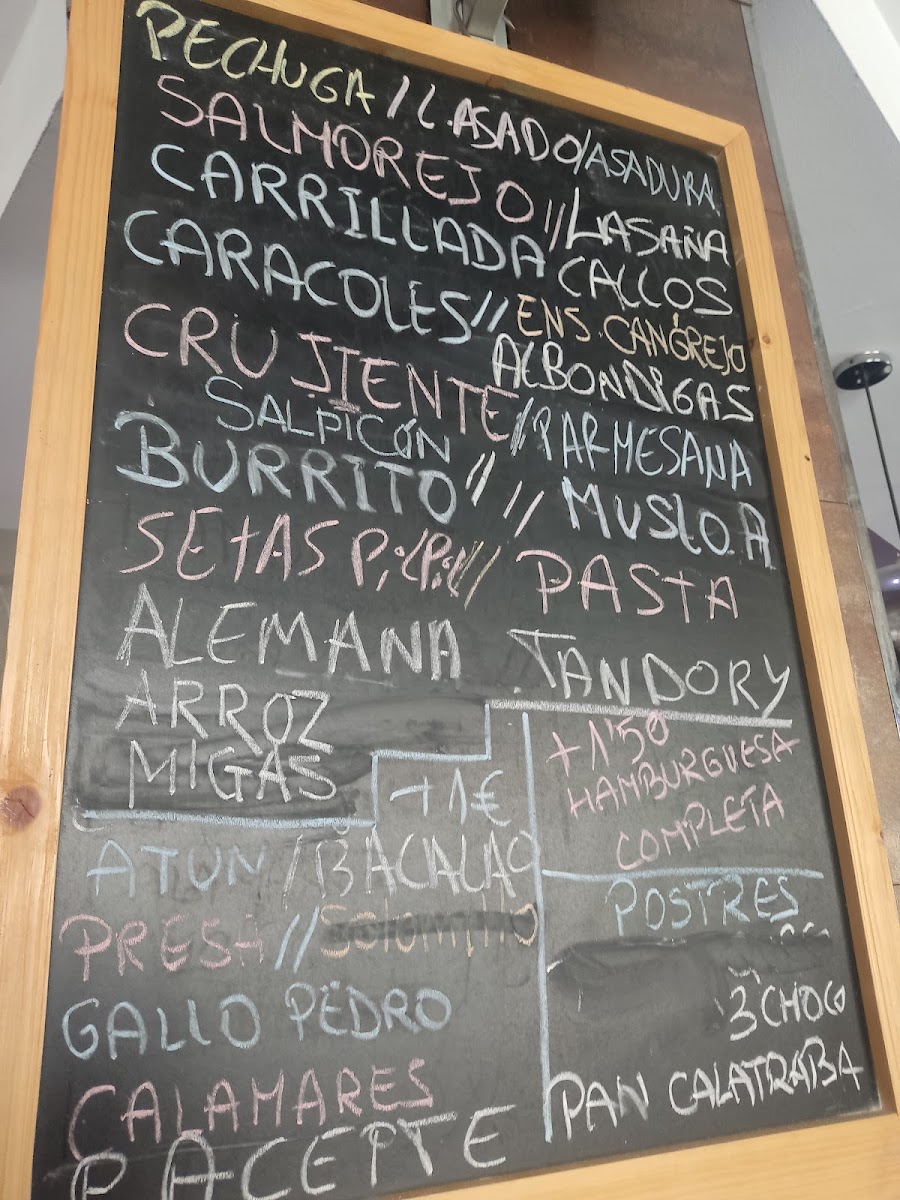 PECHUGA / L. ASADO / ASADURA
SALMOREJO // LASAÑA
CARRILLADA CALLOS
CARACOLES // ENS. CANGREJO
ALBONDIGAS
CRUJIENTE // PARMESANA
SALPICÓN
BURRITO // // MUSLO A
SETAS P.: lP.:l // PASTA
ALEMANA TANDORY
ARROZ
MIGAS
+1€
ATUN / BACALAO
PRESA //
GALLO PEDRO
CALAMARES
P ACEITE
+1'50
HAMBURGUESA
COMPLETA
POSTRES
3 CHOCO
PAN CALATRABA